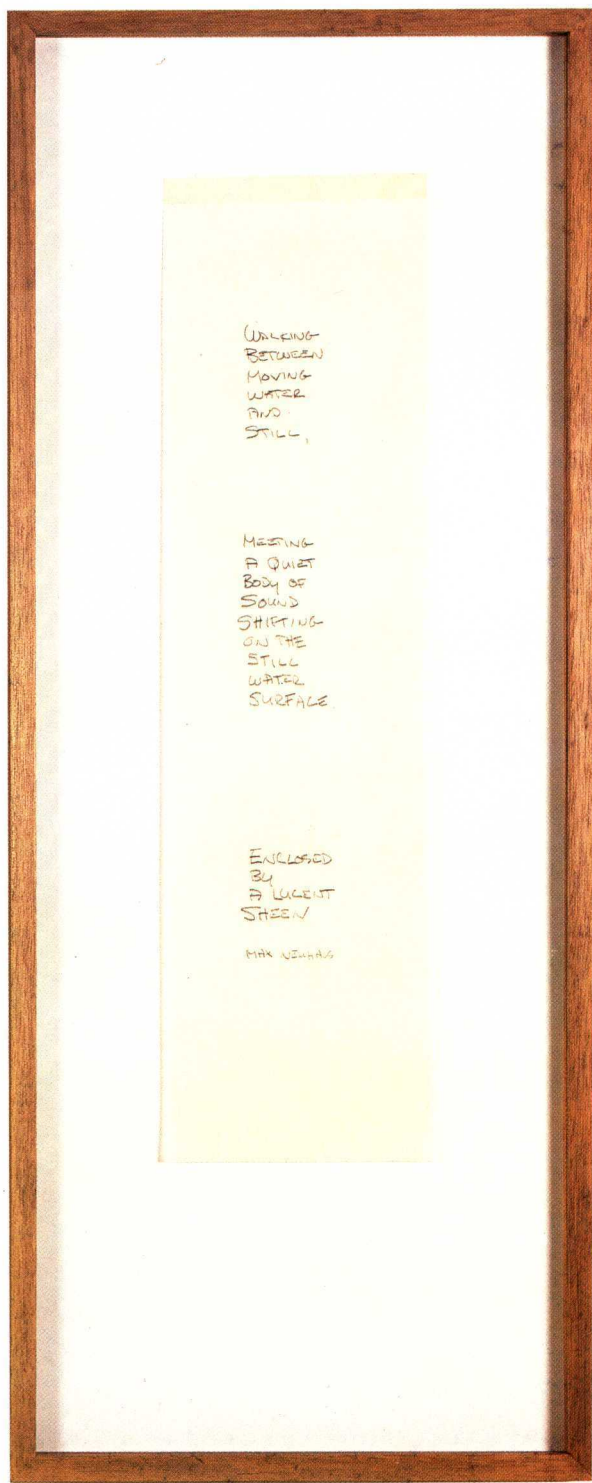 WALKING
BETWEEN
MOVING
WATER
AND
STILL,
MEETING
A QUIET
BODY OF
SOUND
SHIFTING
ON THE
STILL
WATER
SURFACE.
ENCLOSED
BY
A LUCENT
SHEEN
MAX NEUHAUS